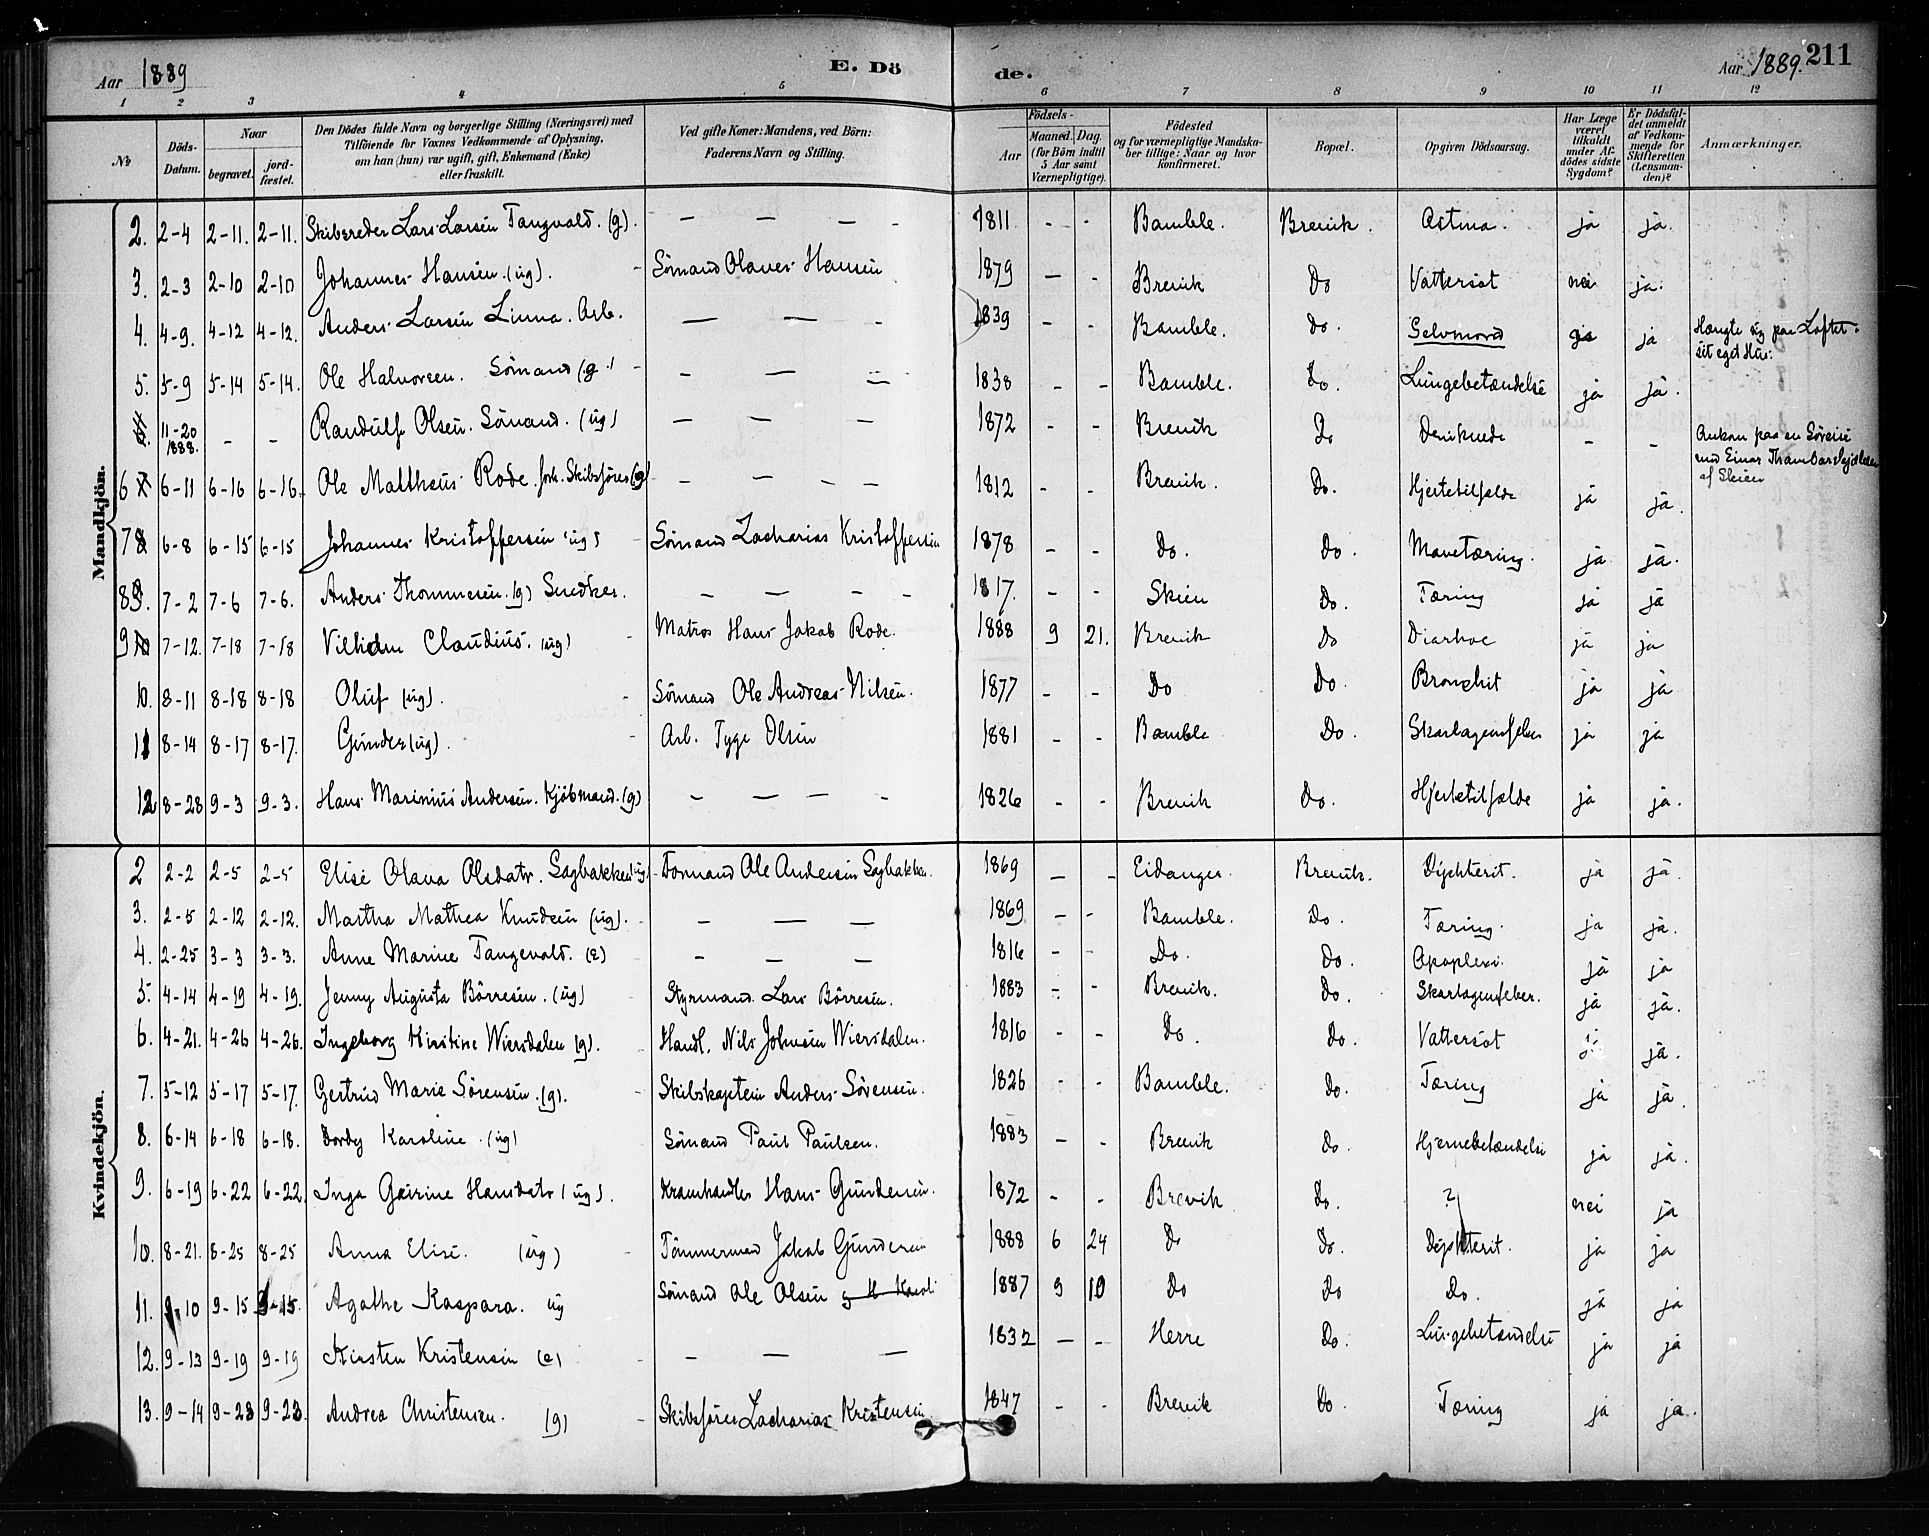 Aar 1889 E. Dö de. Aar 1889. 211
1 2 3 4 5 6 7 8 9 10 11 12
No
Döds-Datum.
Naar
begravet.
jord-fæstet.
Den Dödes fulde Navn og borgerlige Stilling (Næringsvei) med
Tilföiende for Voxnes Vedkommende af Oplysning,
om han (hun) var ugift, gift, Enkemand (Enke)
eller fraskilt.
Ved gifte Koner: Mandens, ved Börn:
Faderens Navn og Stilling.
Födsels-
Aar
Maaned. Dag.
(for Börn indtil
5 Aar samt
Værnepligtige).
Födested
og for værnepligtige Mandska-
ber tillige: Naar og hvor
konfirmeret.
Bopæl.
Opgiven Dödsaarsag.
Har Læge
været
tilkaldt
under Af-
dödes sidste
Sygdom?
Er Dödsfal-
det anmeldt
af Vedkom-
mende for
Skifteretten
(Lensman-
den)?
Anmærkninger.
Mandkjön.
2. 2-4 2-11. 2-11. Skibsreder Lars Larsen Tangvald. (g). — — — - 1811 - - Bamble. Brevik. Astma. ja ja.
3. 2-3 2-10 2-10 Johannes Hansen. (ug). Sömand Olaves Hansen 1879 — - Brevik Do Vattersot nei ja.
4. 4-9. 4-12 4-12. Anders Larsen Linna. Arb. — — - 1839 - - Bamble. do. Selvmord ja ja Hængte sig paa Loftet i
sit eget Hus.
5. 5-9 5-14 5-14. Ole Halvorsen. Sömand (g.) - — — 1838 - - Bamble. Do. Lungebetændelse ja ja.
11-20 1888. - - Randulf Olsen. Sömand. (ug) — — — 1872 - - Brevik Do Druknede - - Ankom paa en Söreise
med Einar Thambarskjelver
af Skien
6 6-11 6-16 6-16. Ole Mattheus Rode. forh. Skibsförer (g) — - - - 1812 - - Brevik. Do. Hjertetilfælde ja ja.
7 6-8 6-15 6-15 Johannes Kristoffersen (ug) Sömand Zacharias Kristoffersen 1878 - - Do. Do. Mavetæring. ja ja.
8 7-2 7-6 7-6. Anders Thommesen. (g) Snedker. — — - - 1817. - - Skien Do. Tæring ja ja
9 7-12. 7-18 7-18 Vilhelm Claudius. (ug) Matros Hans Jakob Rode. 1888 9 21. Brevik Do Diarhoe ja ja
10. 8-11 8-18 8-18 Oluf (ug). Sömand Ole Andreas Nilsen. 1877 - - Do Do. Bronchit ja ja
11 8-14 8-17 8-17. Gunder (ug). Arb. Tyge Olsen 1881 - - Bamble Do. Skarlagensfeber ja ja
12 8-28 9-3 9-3. Hans Marinius Andersen. Kjöbmand. (g) - — — - 1826 - - Brevik Do. Hjertetilfælde ja ja.
Kvindekjön.
2 2-2 2-5 2-5 Elise Olava Olsdatr. Sagbakken (ug) Formand Ole Andersen Sagbakken. 1869 — - Eidanger Brevik. Dyphterit. ja ja.
3. 2-5 2-12 2-12. Martha Mathea Knudsen (ug). - — — 1869 - - Bamble. Do. Tæring. ja ja.
4. 2-25 3-3 3-3. Anne Marine Tangevald. (e) - — — 1816 - - Do. Do. Apoplexi. ja ja
5. 4-14 4-19 4-19. Jenny Augusta Börresen. (ug) Styrmand Lars Börresen. 1883 - - Brevik. Do. Skarlagensfeber. ja ja.
6. 4-21. 4-26 4-26. Ingeborg Kirstine Wiersdalen (g). Handl. Nils Johnsen Wiersdalen. 1816 - - Do. Do. Vattersot ja ja.
7. 5-12 5-17 5-17. Gertrud Marie Sörensen. (g). Skibskaptein Anders Sörensen. 1826 - - Bamble. Do. Tæring ja ja.
8. 6-14 6-18 6-18. Dordy Karoline. (ug) Sömand Paul Paulsen. 1883 - - Brevik Do. Hjernebetændelse ja ja.
9. 6-19 6-22 6-22. Inga Gurine Hansdatr (ug). Kramhandler Hans Gundersen. 1872 - - Brevik Do. ? nei ja
10. 8-21. 8-25 8-25 Anna Elise. (ug) Tömmermand Jakob Gundersen 1888 6 24 Do Do. Dyphterit. ja ja
11. 9-10 9-15 9-15. Agathe Kaspara. ug Sömand Ole Olsen 1887 9 10 Do Do Do. ja ja
12. 9-13 9-19 9-19 Kirsten Kristensen (e) - — — 1832 — - Herre Do. Lungebetændelse ja ja
13. 9-14 9-23 9-23. Andrea Christensen. (g) Skibsförer Zacharias Kristensen 1847 - - Brevik Do. Tæring ja ja.